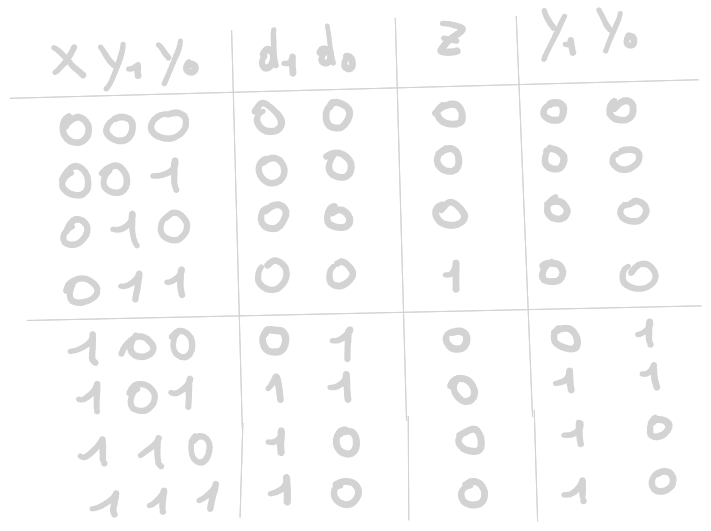 x y1 y0 d1 d0 z y1 y0
0 0 0 0 0 0 0 0
0 0 1 0 0 0 0 0
0 1 0 0 0 0 0 0
0 1 1 0 0 1 0 0
1 0 0 0 1 0 0 1
1 0 1 1 1 0 1 1
1 1 0 1 0 0 1 0
1 1 1 1 0 0 1 0